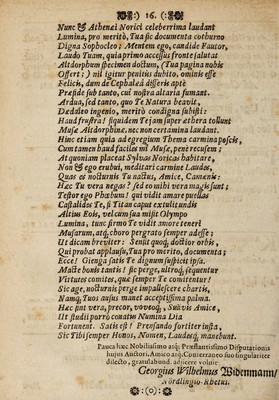 :) 16. (:
Nunc & Athenei Norici celeberrima laudant
Lumina, pro meritò, Tua sic documenta cothurno
Digna Sophocleo; Mentem ego, candide Fautor,
Laudo Tuam, quia primo accessus fronte salutat
Altdorphum specimen doctum, (Tua pagina nobis
Offert;) nil igitur penitus dubito, ominis esse
Felicis, dum de Cephalæâ disseris aptè
Præside sub tanto, cui nostra altaria fumant.
Ardua, sed tanto, quo Te Natura beavit,
Dædaleo ingenio, meritò condigna subisti:
Haud frustra! siquidem Te jam super æthera tollunt
Musæ Altdorphinæ. nec non certamina laudant.
Hinc etiam quia ad egregium Thema carmina poscis,
Cum tamen haud facilis mî Musæ, peni recusem;
At quoniam placeat Sylvas Noricas habitare,
Non & ego erubui, meditari carmine Laudes,
Quas es nocturnis Tu nactus, Amice, Camœnis:
Hæc Tu vera negas? sed eo mihi vera magis sunt;
Testor ego Phœbum! qui vidit amare puellas
Castalides Te, si Titan caput extulit undis
Altius Eois, vel cum sua misit Olympo
Lumina, tunc firmo Te vidit amore teneri
Musarum, atq; choro pergrato semper adesse;
Ut dicam breviter: Sensit quoq; doctior orbis,
Qui probat applausu, Tua pro merito, documenta;
Ecce! Gienga satis Te dignum suspicit ipsi.
Macte bonis tantis! sic perge, ultroq; sequentur
Virtutes comites, quæ semper Te comitentur!
Sic age, nocturnis perge impallescere chartis,
Namq; Tuos ausus manet acceptissima palma.
Hæc sint vera, precor, voveoq;, Suavis Amice,
Ut studii porrò conatus Numina Dia
Fortunent. Satis est! Prænsando fortiter insta,
Sic Tibi semper Honos, Nomen, Laudesq; manebunt.
Pauca hæc Nobilissimo atq; Præstantissimo Disputationis
hujus Auctori, Amico atq; Conterraneo suo singulariter
dilecto, gratulabund. adjicere voluit
Georgius Wilhelmus Widenmann/
Nördlingâ-Rhetus.
:) o (: